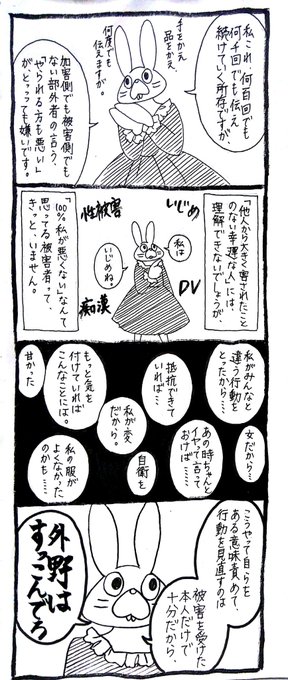 私これ、何百回でも
何千回でも伝え
続けていく所存ですが、
手をかえ
品をかえ
何度でも
伝えますが。
加害側でも被害側でも
ない部外者の言う、
「やられる方も悪い」
がとっっっても嫌いです。
「他人から大きく害されたこと
のない幸運な人」には、
理解できないでしょうが、
いじめ
性被害
DV
痴漢
私は
いじめね。
「100%私が悪くない」なんて
思ってる被害者って、
きっと、いません。
私がみんなと
違う行動を
とったから…。
抵抗できて
いれば…
もっと気を
付けていれば
こんなことには。
甘かった
女だから…
あの時ちゃんと
イヤって言って
おけば……
私が変
だから。
自衛を
私の服が
よくなかった
のかも……
こうやって自らを
ある意味責めて、
行動を見直すのは
被害を受けた
本人だけで
十分だから、
外野は
すっこんでろ